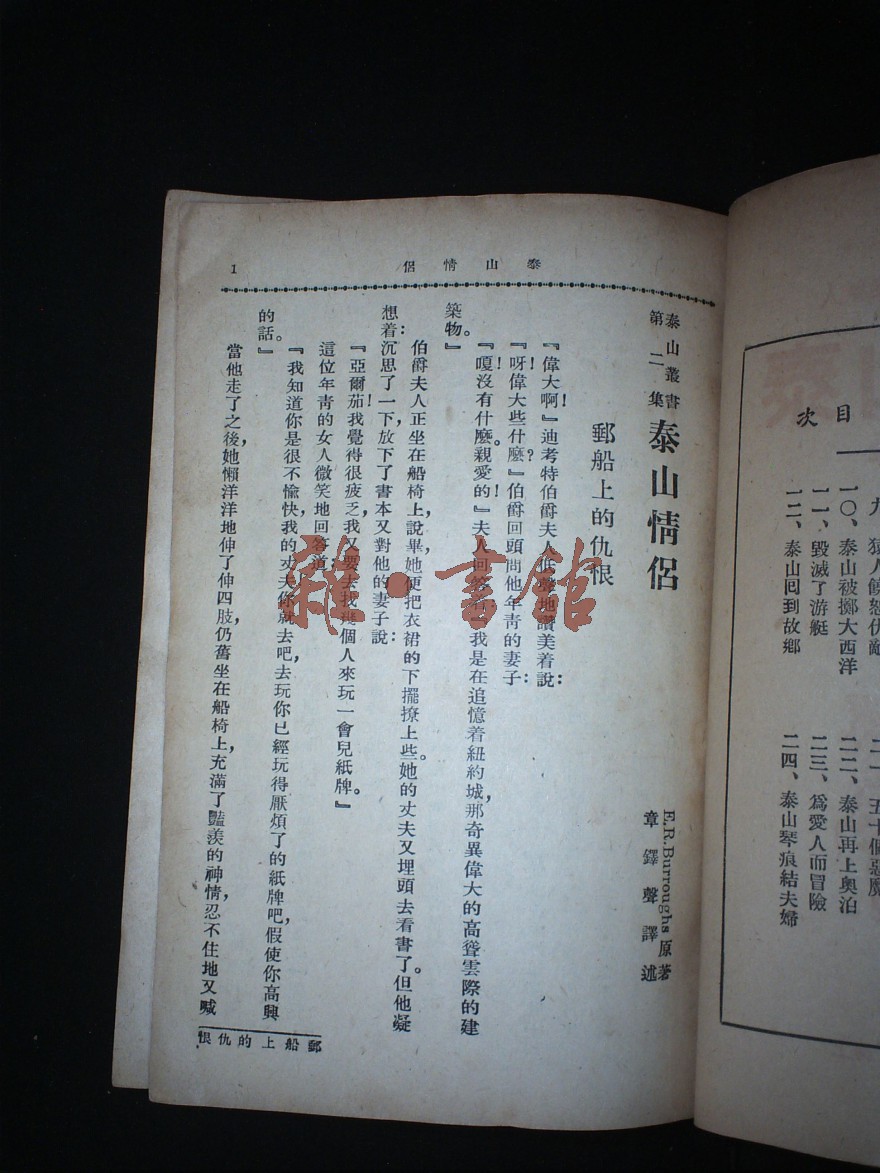 目次
九、猿人
一〇、泰山被擲大西洋
一一、毀滅了游艇
一二、泰山囘到故鄉
五十個惡魔
二二、泰山再上奥泊
二三、爲愛人而冒險
二四、泰山琴痕結夫婦
泰山情侶
1
泰山叢書
第二集
泰山情侶
E.R.Burroughs 原著
章鐸聲譯述
郵船上的仇恨
『偉大啊!』迪考特伯爵夫人低聲地讚美着說:
『呀!偉大些什麽?』伯爵回頭問他年靑的妻子:
『嗄!沒有什麽。親愛的!』夫人回答着『我是在追憶着紐約城,那奇異偉大的高聳雲際的建
築物。』
伯爵夫人正坐在船椅上,說畢,她便把衣裙的下擺撩上些。她的丈夫又埋頭去看書了。但他凝
想着:沉思了一下,放下了書本又對他的妻子說:
『亞爾茄!我覺得很疲乏,我又要去找幾個人來玩一會兒紙牌。』
這位年靑的女人微笑地回答道:
『我知道你是很不愉快,我的丈夫,你就去吧,去玩你已經玩得厭煩了的紙牌吧,假使你高興
的話。』
當他走了之後,她懶洋洋地伸了伸四肢,仍舊坐在船椅上,充滿了豔羨的神情,忍不住地又喊
郵船上的仇恨
雜·書館